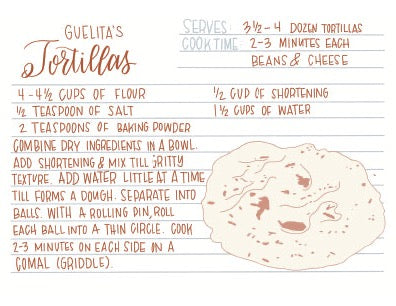 GUELITA'S
Tortillas
SERVES 3 1/2 - 4 DOZEN TORTILLAS
COOK TIME 2-3 MINUTES EACH
BEANS & CHEESE
4 - 4 1/2 CUPS OF FLOUR
1/2 TEASPOON OF SALT
2 TEASPOONS OF BAKING POWDER
1/2 CUD OF SHORTENING
1 1/2 CUPS OF WATER
COMBINE DRY INGREDIENTS IN A BOWL.
ADD SHORTENING & MIX TILL GRITTY
TEXTURE. ADD WATER LITTLE AT A TIME
TILL FORMS A DOUGH. SEPARATE INTO
BALLS. WITH A ROLLING PIN, ROLL
EACH BALL INTO A THIN CIRCLE. COOK
2-3 MINUTES ON EACH SIDE ON A
COMAL (GRIDDLE).